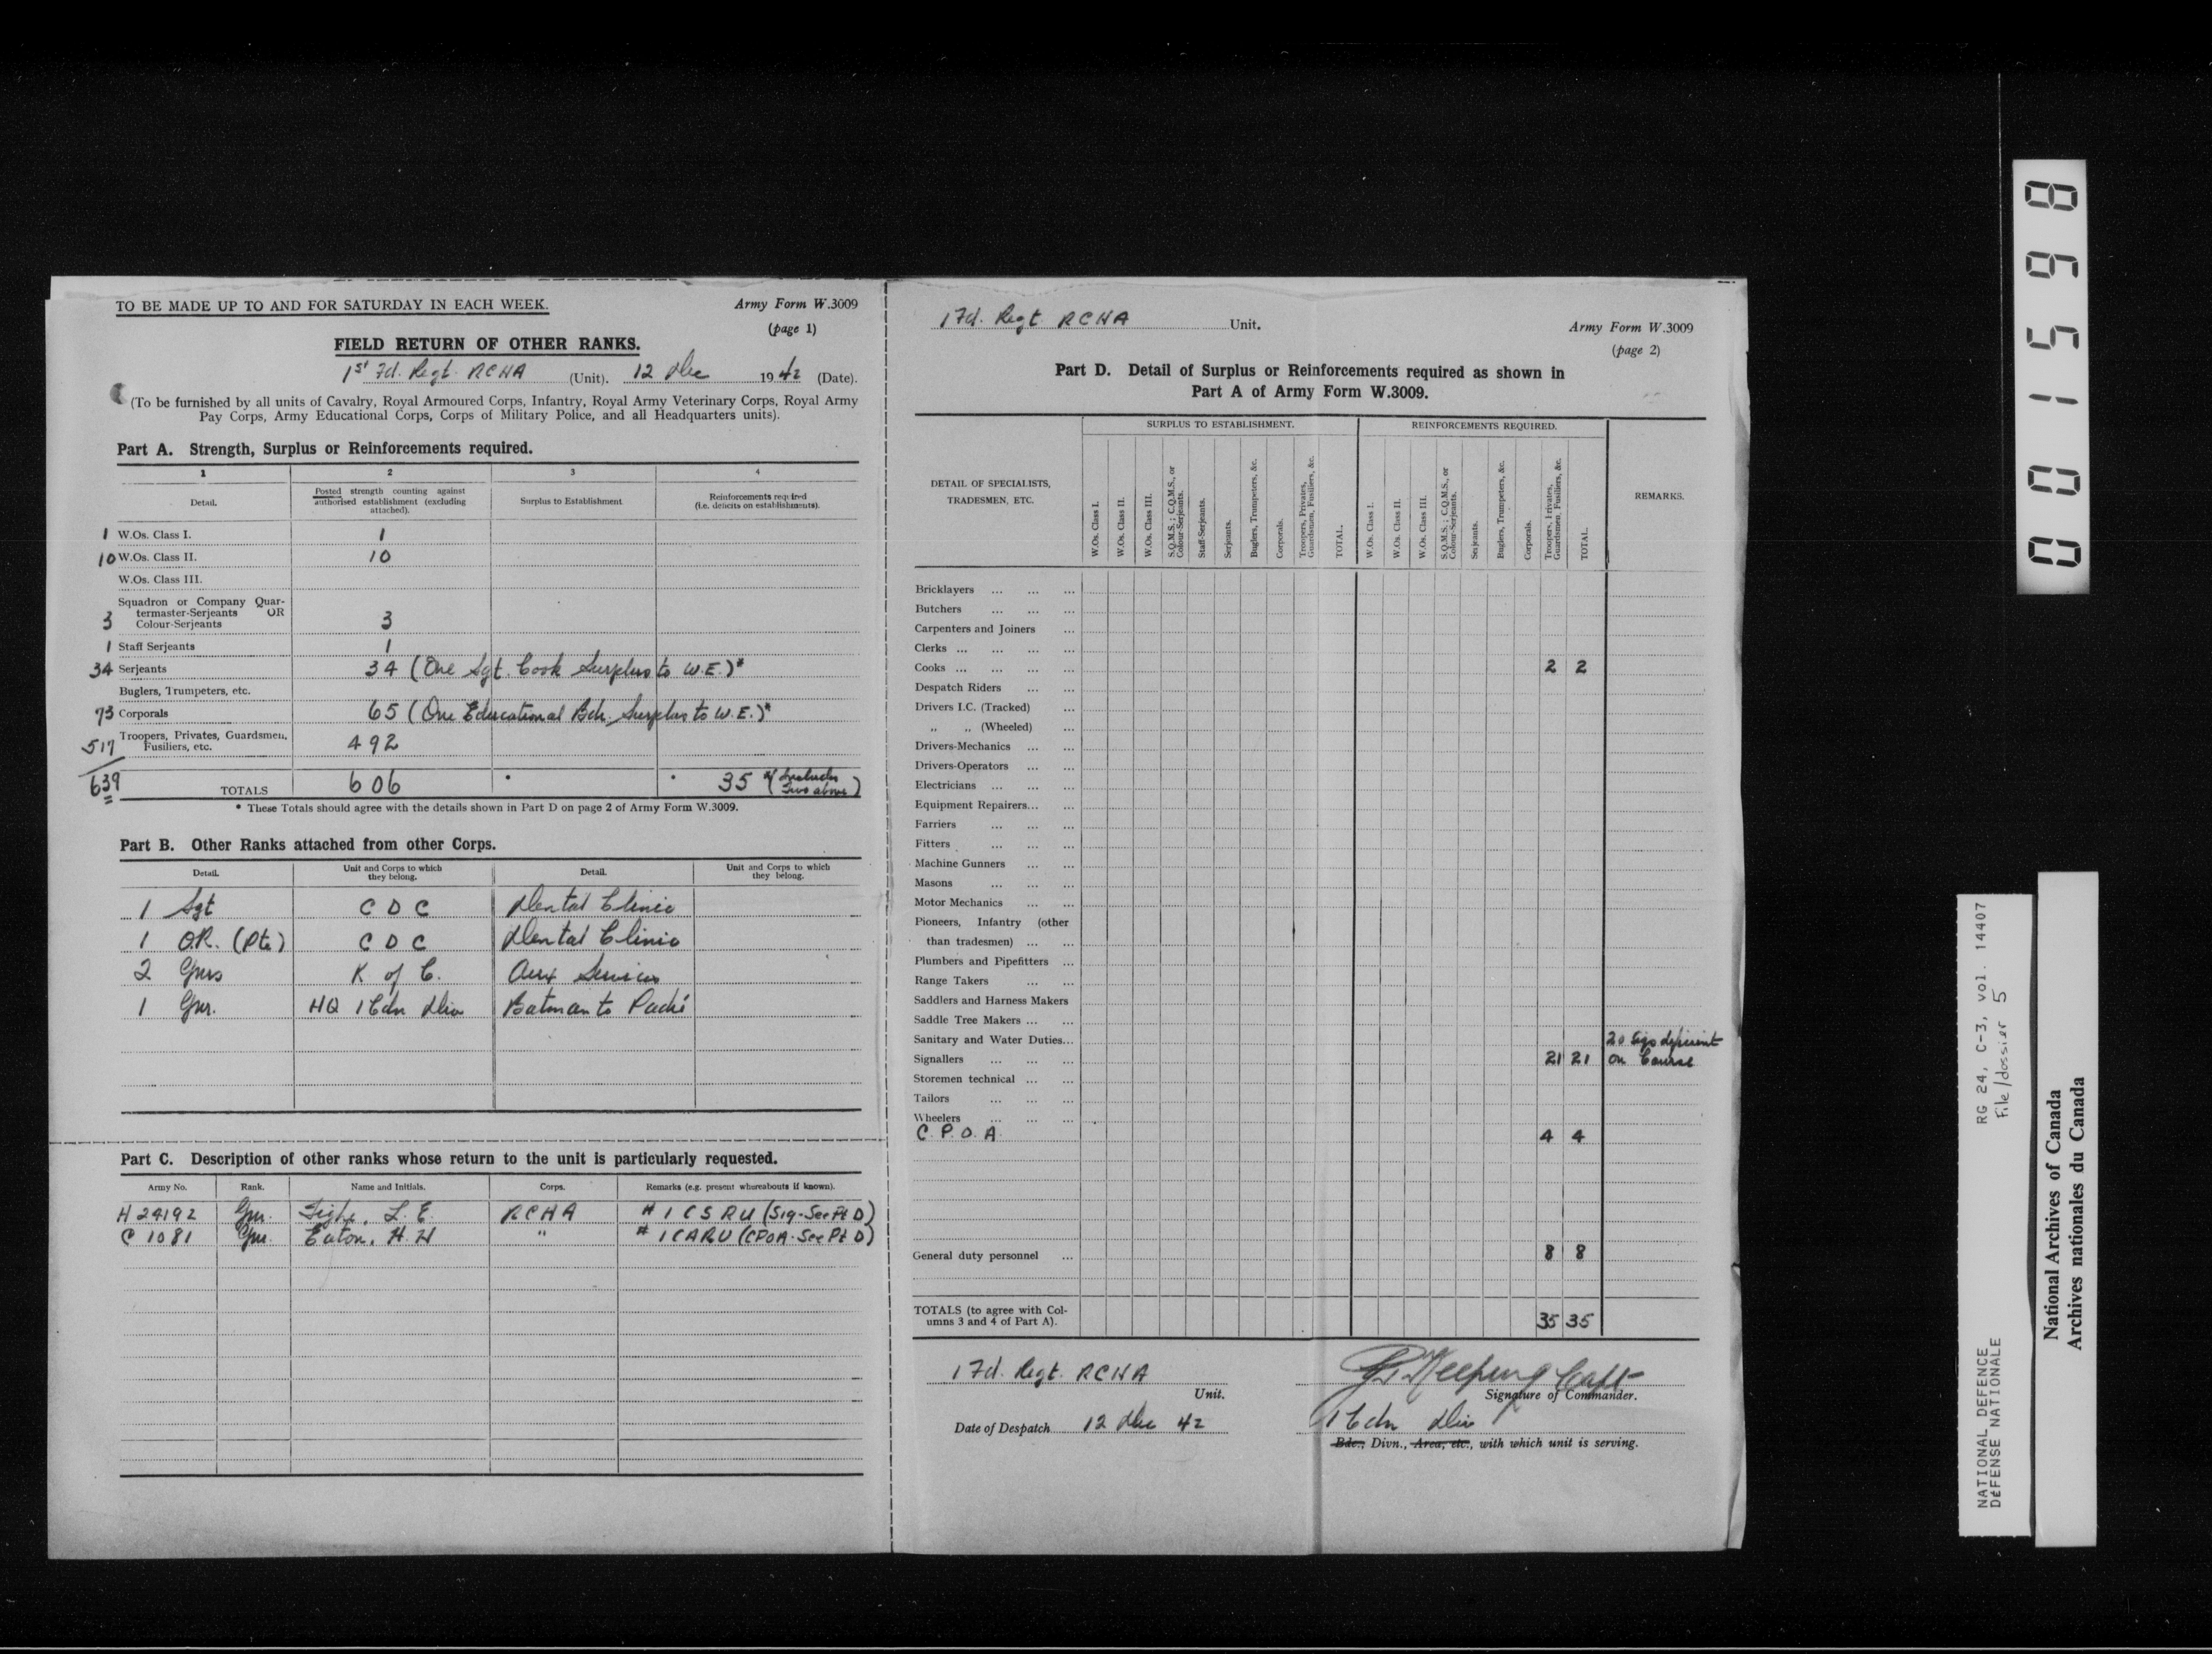 TO BE MADE UP TO AND FOR SATURDAY IN EACH WEEK.
Army Form W.3009
(page 1)
FIELD RETURN OF OTHER RANKS.
1st Fd. Regt. RCHA (Unit). 12 Dec 1942 (Date).
(To be furnished by all units of Cavalry, Royal Armoured Corps, Infantry, Royal Army Veterinary Corps, Royal Army
Pay Corps, Army Educational Corps, Corps of Military Police, and all Headquarters units).
Part A. Strength, Surplus or Reinforcements required.
1 2 3 4
Detail.
Posted strength counting against
authorised establishment (excluding
attached).
Surplus to Establishment
Reinforcements required
(i.e. deficits on establishments).
1 W.Os. Class I. 1
10 W.Os. Class II. 10
W.Os. Class III.
Squadron or Company Quar-
termaster-Serjeants OR
3 Colour-Serjeants 3
1 Staff Serjeants 1
34 Serjeants 34 (One Sgt. Cook Surplus to W.E.)*
Buglers, Trumpeters, etc.
73 Corporals 65 (One Educational Bdr. Surplus to W.E.)*
517 Troopers, Privates, Guardsmen,
Fusiliers, etc. 492
639 TOTALS 606 * * 35 (Includes
Two above)
* These Totals should agree with the details shown in Part D on page 2 of Army Form W.3009.
Part B. Other Ranks attached from other Corps.
Detail.
Unit and Corps to which
they belong.
Detail.
Unit and Corps to which
they belong.
1 Sgt C D C Dental Clinic
1 O.R. (Pte) C D C Dental Clinic
2 Gnrs K of C. Aux Services
1 Gnr. HQ 1 Cdn Div Batman to Padré
Part C. Description of other ranks whose return to the unit is particularly requested.
Army No. Rank. Name and Initials. Corps. Remarks (e.g. present whereabouts if known).
H 24192 Gnr. L. E. RCHA # 1 C S R U (Sig-See Pt D)
C 1081 Gnr. Eaton, H. H " # 1 CARU (CPOA-See Pt D)
1 Fd. Regt. RCHA Unit.
Army Form W.3009
(page 2)
Part D. Detail of Surplus or Reinforcements required as shown in
Part A of Army Form W.3009.
DETAIL OF SPECIALISTS,
TRADESMEN, ETC.
SURPLUS TO ESTABLISHMENT.
W.Os. Class I.
W.Os. Class II.
W.Os. Class III.
S.Q.M.S.; C.Q.M.S., or
Colour-Serjeants.
Staff-Serjeants.
Serjeants.
Buglers, Trumpeters, &c.
Corporals.
Troopers, Privates,
Guardsmen, Fusiliers, &c.
TOTAL.
REINFORCEMENTS REQUIRED.
W.Os. Class I.
W.Os. Class II.
W.Os. Class III.
S.Q.M.S.; C.Q.M.S., or
Colour-Serjeants.
Serjeants.
Buglers, Trumpeters, &c.
Corporals.
Troopers, Privates,
Guardsmen, Fusiliers, &c.
TOTAL.
REMARKS.
Bricklayers ... ... ...
Butchers ... ... ...
Carpenters and Joiners ...
Clerks ... ... ... ...
Cooks ... ... ... ... 2 2
Despatch Riders ... ...
Drivers I.C. (Tracked) ...
" " (Wheeled) ...
Drivers-Mechanics ... ...
Drivers-Operators ... ...
Electricians ... ... ...
Equipment Repairers... ...
Farriers ... ... ...
Fitters ... ... ...
Machine Gunners ... ...
Masons ... ... ...
Motor Mechanics ... ...
Pioneers, Infantry (other
than tradesmen) ... ...
Plumbers and Pipefitters ...
Range Takers ... ...
Saddlers and Harness Makers
Saddle Tree Makers ... ...
Sanitary and Water Duties... 20 Sigs deficient
Signallers ... ... ... 21 21 on Course
Storemen technical ... ...
Tailors ... ... ...
Wheelers ... ... ...
C. P. O. A. 4 4
General duty personnel ... 8 8
TOTALS (to agree with Col-
umns 3 and 4 of Part A). 35 35
1 Fd. Regt. RCHA
Unit.
Keeping Capt
Signature of Commander.
Date of Despatch 12 Dec 42
1 Cdn Div
Bde., Divn., Area, etc., with which unit is serving.
001598
RG 24, C-3, vol. 14407
File/dossier 5
NATIONAL DEFENCE
DÉFENSE NATIONALE
National Archives of Canada
Archives nationales du Canada